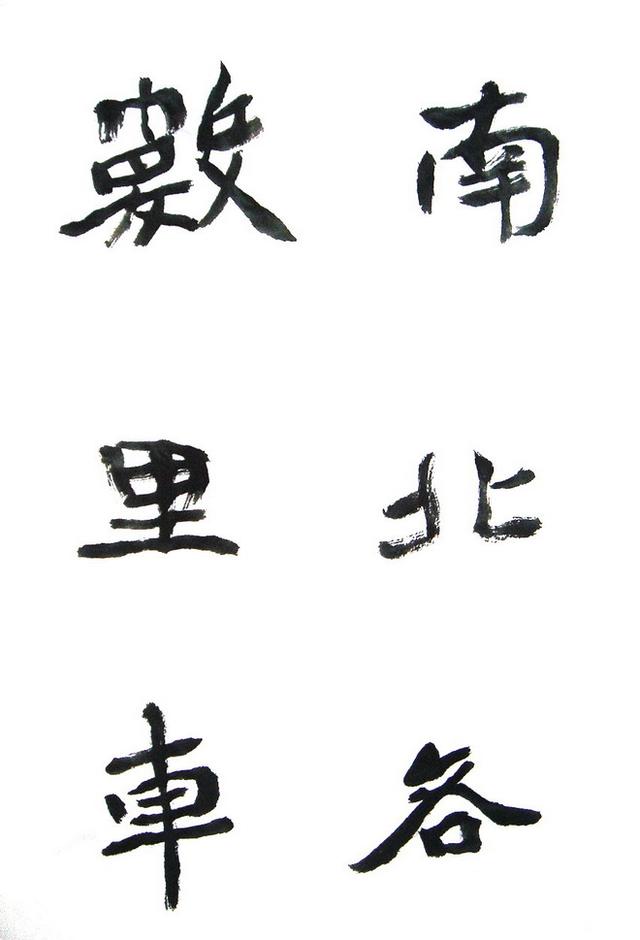 南北各
數里車